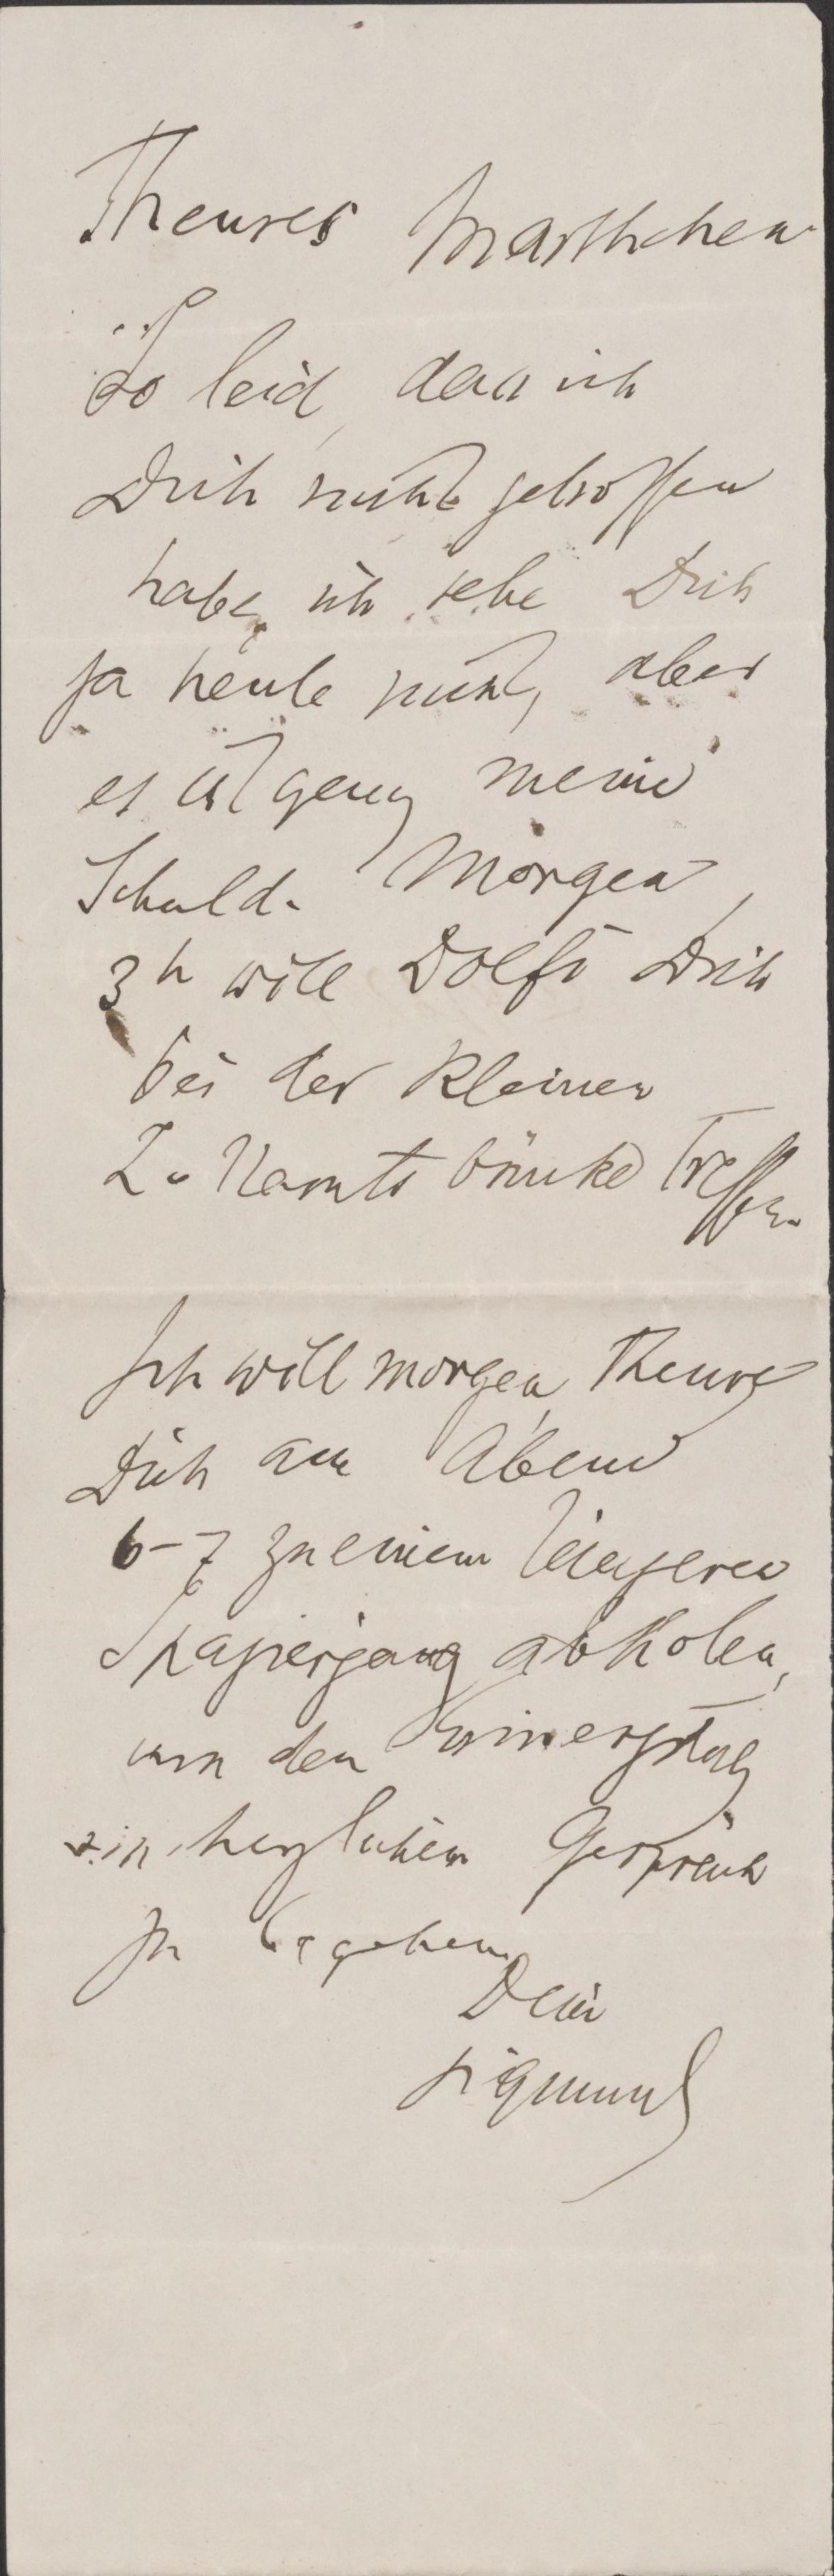 Theures Marthchen
So leid, dass ich
Dich nicht getroffen
habe, ich sehe Dich
ja heute nicht, aber
es ist ganz meine
Schuld. Morgen,
3h will Dolfi Dich
bei der kleinen
Z. Hamts brücke treffen.
Ich will morgen, Theure
Dich am Abend
6-7 zu einem längeren
Spaziergang abholen,
um den
in herzlichem Gespräch
zu begehen
Dein
Sigmund